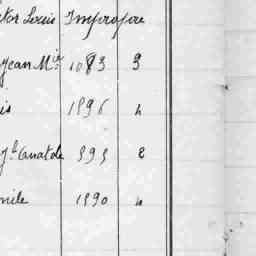 ctor Louis Impropre
Jean Mie 1883 3
is 1896 4
Jh Anatole 1893 2
mile 1890 4